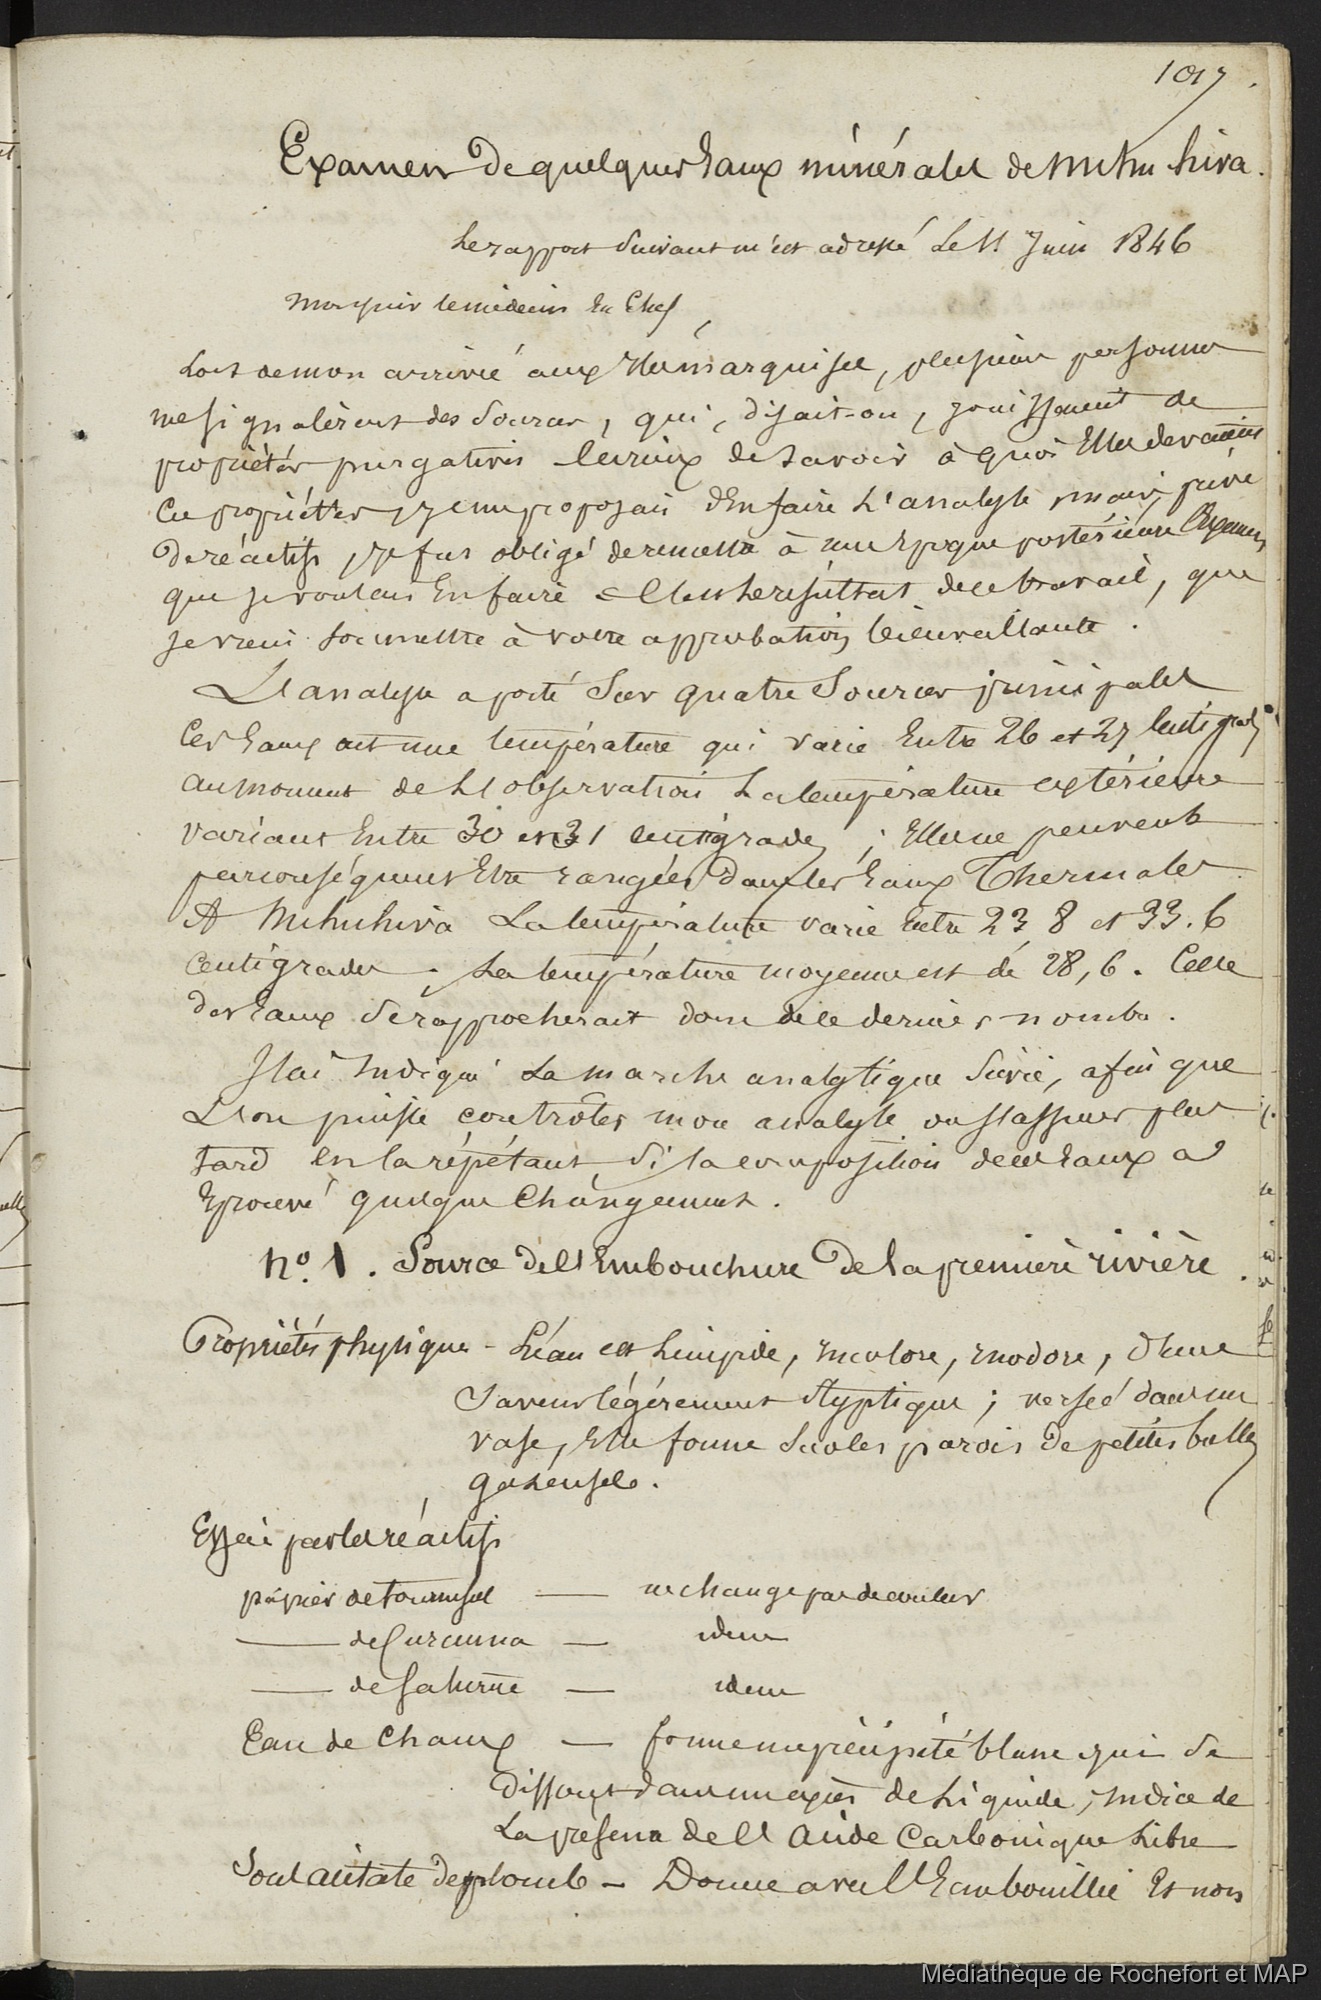 1017.
Examen de quelques Eaux minérales de Nuhu hiva.
Le rapport suivant m'est adressé Le 11 Juin 1846
Monsieur le médecin En Chef,
Lors de mon arrivée aux Iles marquises, plusieurs personnes
me signalèrent des Sources, qui, disait-on, jouissaient de
propriétés purgatives curieux de savoir à quoi Elles devaient
Ces propriétés, je me proposais d'En faire L'analyse, mais, privé
de réactifs, je fus obligé de remettre à une époque postérieure l'Examen
que je voulais En faire. C'est Le résultat de ce travail, que
je viens soumettre à votre approbation bienveillante.
L'analyse a porté Sur quatre Sources principales
Ces Eaux ont une température qui varie Entre 26 et 27 Centigrades
au moment de L'observation La température extérieure
variant Entre 30 et 31 centigrades; Elles ne peuvent
par conséquent Etre rangées dans les Eaux Thermales.
A Nuhuhiva La température varie Entre 23 8 et 33.6
Centigrades. La température moyenne est de 28,6. Celle
des Eaux Se rapprocherait donc de ce dernier nombre.
J'ai Indiqué La marche analytique Suivie, afin que
L'on puisse contrôler mon analyse ou s'assurer plus
tard En la répétant, Si la composition de ces Eaux a
Eprouvé quelque Changement.
No. 1. Source de l'Embouchure de la première rivière.
Propriétés physiques - L'eau est Limpide, Incolore, Inodore, d'une
Saveur légèrement Styptique; versée dans un
vase, Elle forme Sur les parois de petites bulles
gazeuses.
Essai par les réactifs
papier de tournesol — ne change pas de couleur
— de Curcuma — idem
— de Saturne — idem
Eau de Chaux — forme un précipité blanc qui se
dissout dans un excès de Liquide, Indice de
La présence de l'acide Carbonique Libre
Sous acétate de plomb — Donne avec l'Eau bouillie Et non
Médiathèque de Rochefort et MAP